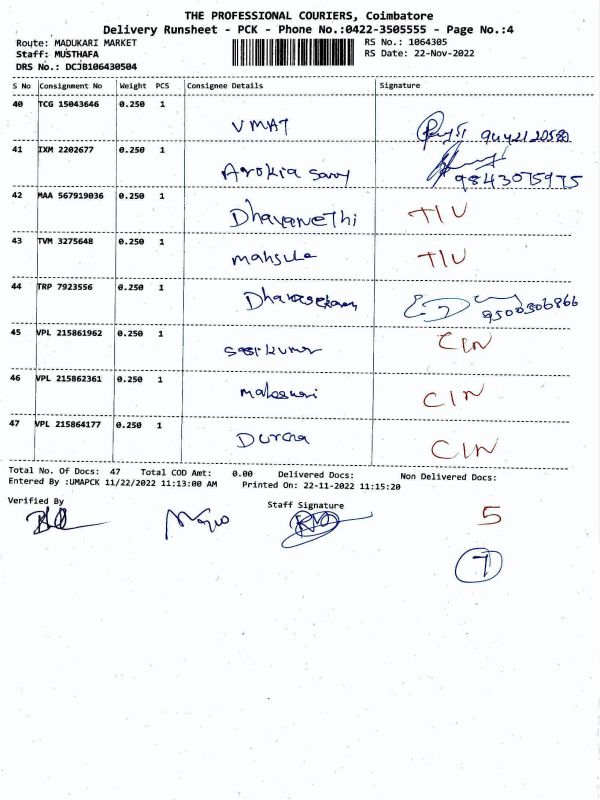 THE PROFESSIONAL COURIERS, Coimbatore
Delivery Runsheet - PCK - Phone No.:0422-3505555 - Page No.:4
Route: MADUKARI MARKET RS No.: 1064305
Staff: MUSTHAFA RS Date: 22-Nov-2022
DRS No.: DCJB106430504
S No Consignment No Weight PCS Consignee Details Signature
40 TCG 15043646 0.250 1 VMAT
41 IXM 2202677 0.250 1 Arokia Samy 9843075975
42 MAA 567919036 0.250 1 Dhayanethi TIU
43 TVM 3275648 0.250 1 TIU
44 TRP 7923556 0.250 1 Dhanasekaran 9500506866
45 VPL 215861962 0.250 1 Sasikumar CIN
46 VPL 215862361 0.250 1 CIN
47 VPL 215864177 0.250 1 Durga CIN
Total No. Of Docs: 47 Total COD Amt: 0.00 Delivered Docs: Non Delivered Docs:
Entered By :UMAPCK 11/22/2022 11:13:00 AM Printed On: 22-11-2022 11:15:20
Verified By Staff Signature
5
7